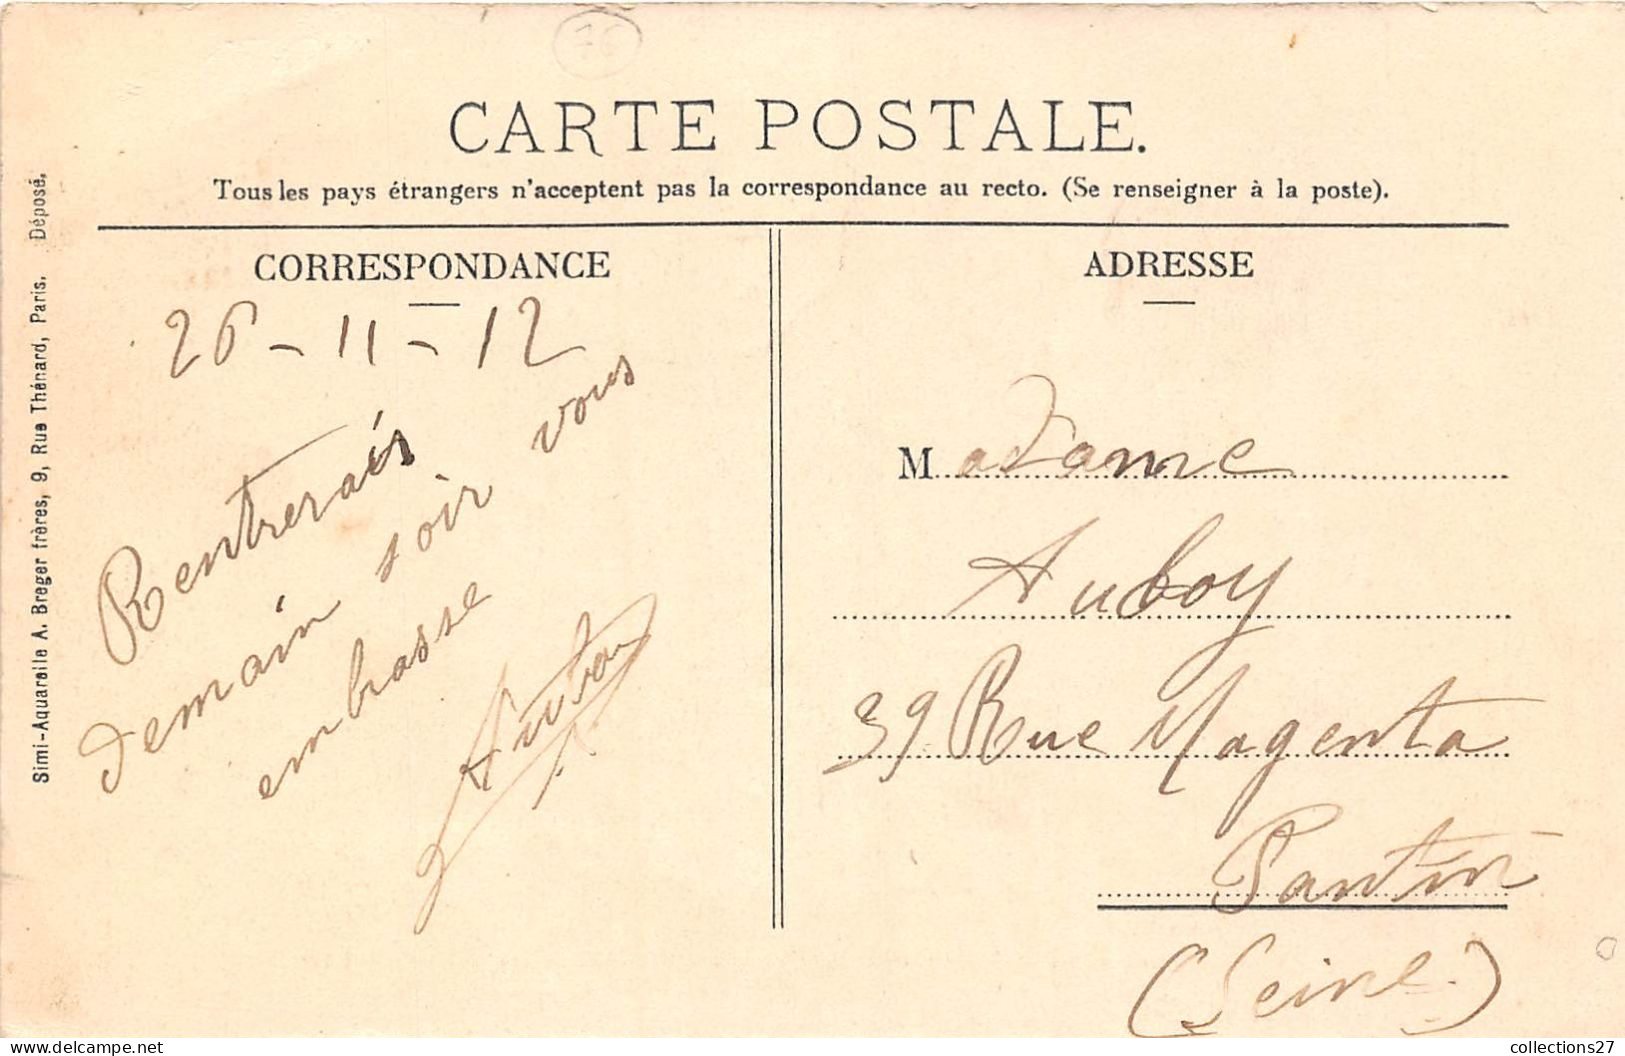 76
CARTE POSTALE.
Tous les pays étrangers n'acceptent pas la correspondance au recto. (Se renseigner à la poste).
Simi-Aquarelle A. Breger frères, 9, Rue Thénard, Paris. Déposé.
CORRESPONDANCE
26-11-12
Rentrerais
demain soir vous
embrasse
Auboy
ADRESSE
Madame
Auboy
39 Rue Magenta
Pantin
(Seine)
collections27